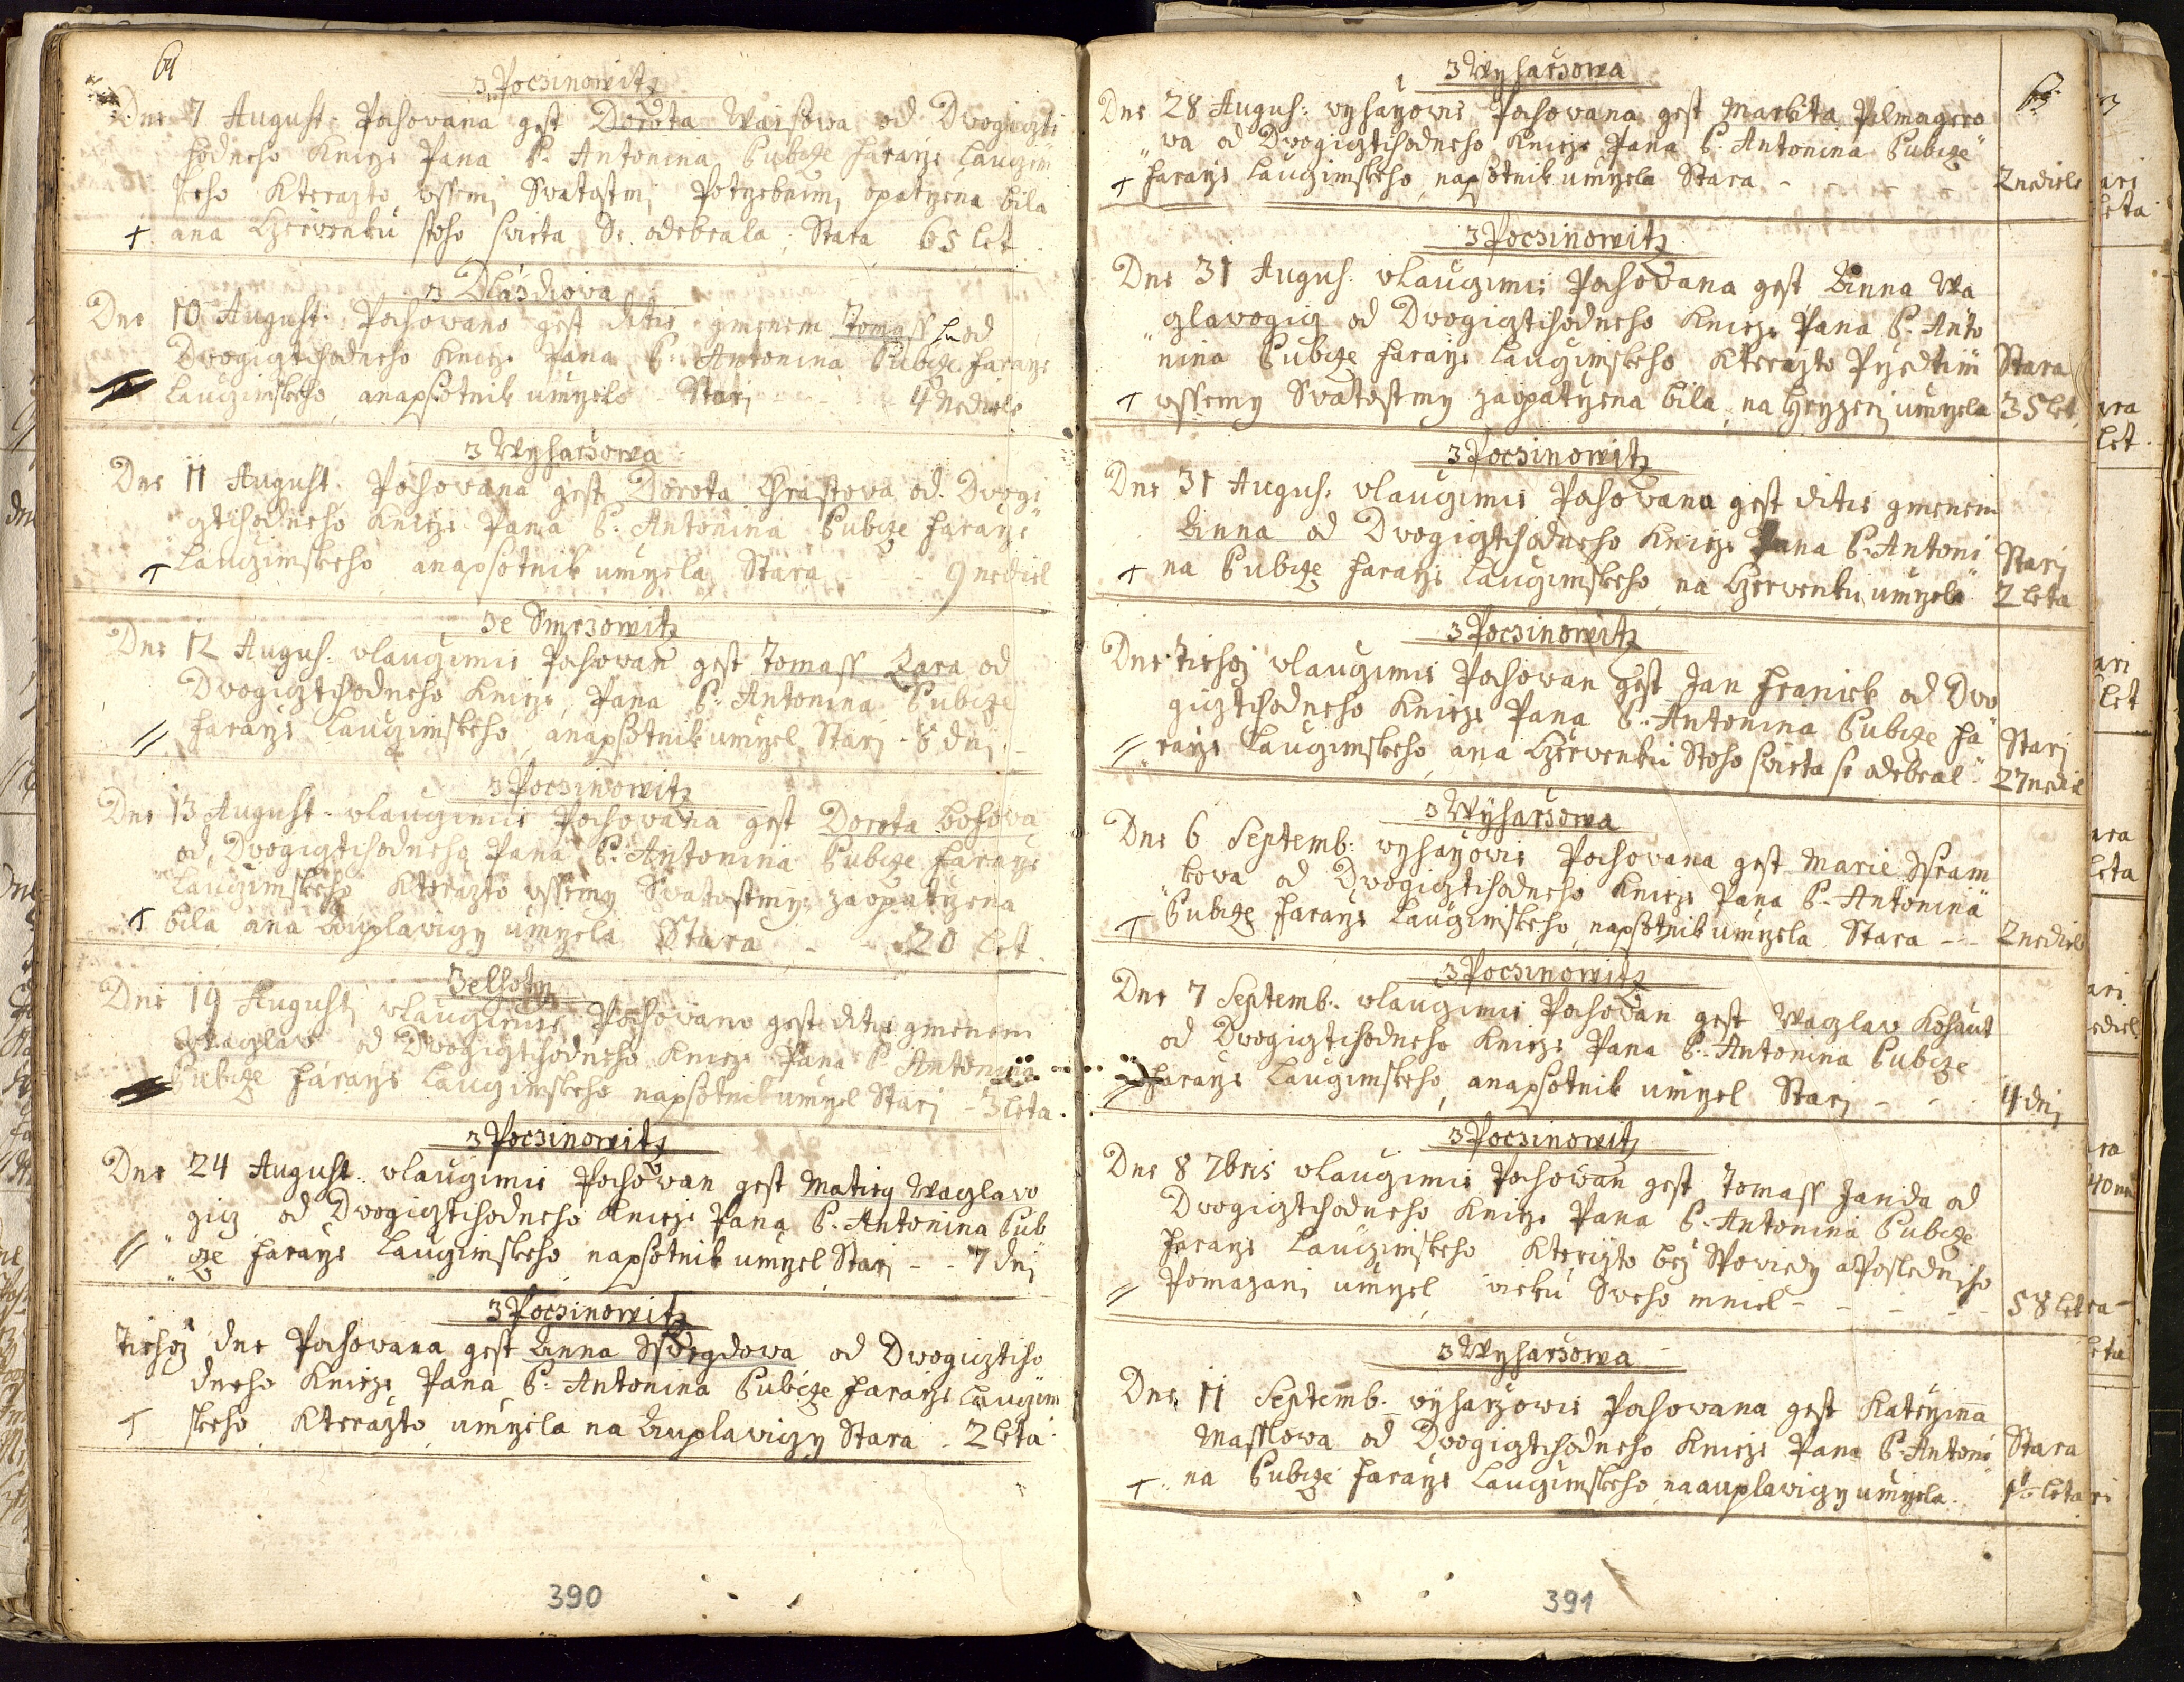 64
z Poczinowitz
Dne 7 August: Pochowana gest Dorota Waisowa od Dwogiczti
hodneho Knieze Pana P. Antonina Bubicze faraře Lauczim
skeho Kterazto wssemi Swatostmi Potrzebnimi opatrzena bila
† ana Czerwenku stoho swieta Se odebrala, Stara 65 let
z Dlazdiowa
Dne 10 August: Pochowano gest ditie gmenem Tomass od
Dwogictihodneho Knieze Pana P. Antonina Bubicze faraře
Lauczimskeho anapsotnik umrzelo Stari - - 4 Nediele
z Wyharzowa
Dne 11 August. Pochowana gest Dorota Chrastowa od Dwogi
gtihodneho Knieze Pana P. Antonina Bubicze faraře
† Lauczimskeho anapsotnik umrzela Stara - - 9 nediel
ze Smrzowitz
Dne 12 Augus: wlauczimie Pochowan gest Tomass Bara od
Dwogicztihodneho Knieze Pana P. Antonina Bubicze
// faraře Lauczimskeho anapsotnik umrzel Stari - 8 dni
z Poczinowitz
Dne 13 August. wlauczimie Pochowana gest Dorota bohowa
od Dwogigtihodneho Pana P. Antonina Bubicze faraře
Lauczimskeho Kterazto wssemy Swatostmy zaopatrzena
† bila ana Auplawiczy umrzela Stara - - 20 let.
Zelhoty
Dne 19 August wlauczimie Pochowano gest ditie gmenem
Waczlaw od Dwogigtihodneho Knieze Pana P Antonina
Bubicze faraře Lauczimskeho napsotnik umrzel Stari - 3 leta.
z Poczinowitz
Dne 24 August. wlauczimie Pochowan gest Matieg Waczlawo
gicz od Dwogicztihodneho Knieze Pana P. Antonina Bub
// cze faraře Lauczimskeho napsotnik umrzel Stari - - 7 dni
z Poczinowitz
Tiehoz dne Pochowana gest Anna Sswegdowa od Dwogicztiho
dneho Knieze Pana P: Antonina Bubicze faraře Lauczim
† skeho Kterazto umrzela na Auplawiczy Stara . 2 leta
390
z Wyharzowa
63
Dne 28 Augus: wyharzowie Pochowana gest Markita Pilmagero
wa od Dwogicztihodneho Knieze Pana P. Antonina Bubicze
† faraře Lauczimskeho napsotnik umrzela Stara - - - - 2 nediele
z Poczinowitz
Dne 31 Augus: wlauczimie Pochowana gest Anna Wa
czlawogicz od Dwogicztihodneho Knieze Pana P. Anto
nina Bubicze faraře Lauczimskeho Kterazto Przedtim Stara
† wssemy Swatostmy zaopatrzena bila, na Hryzeni umrzela 35 let
z Poczinowitz
Dne 31 Augus: wlauczimie Pochowana gest ditie gmenem
Anna od Dwogigtihodneho Knieze Pana P. Antoni Stari
† na Bubicze faraře Lauczimskeho na Czerwenku umrzela 2 leta
z Poczinowitz
Dne Tiehoz wlauczimie Pochowan gest Jan Hraniek od Dwo
gicztihodneho Knieze Pana P. Antonina Bubicze fa Stari
// raře Lauczimskeho ana Czerwenku Stoho swieta se odebral 27 nediel
z Wyharzowa
Dne 6 Septemb: wyharzowie Pochowana gest Marie Ssram
kowa od Dwogicztihodneho Knieze Pana P. Antonina
† Bubicze faraře Lauczimskeho napsotnik umrzela Stara - - 2 nediele
z Poczinowitz
Dne 7 Septemb: wlauczimie Pochowan gest Waczlaw Kohaut
od Dwogigtihodneho Knieze Pana P. Antonina Bubicze
faraře Lauczimskeho, anapsotnik umrzel Stari - - 4 dni
z Poczinowitz
Dne 8 7bris wlauczimie Pochowan gest Tomass Janda od
Dwogigtihodneho Knieze Pana P. Antonina Bubicze
faraře Lauczimskeho Kterizto bez Spowiedy aPosledniho
// Pomazani umrzel wieku Sweho mniel - - - - - 58 let
z Wyharzowa
Dne 11 Septemb. wyharzowie Pochowana gest Katerzina
Masslowa od Dwogigtihodneho Knieze Pana P. Antoni Stara
† na Bubicze faraře Lauczimskeho naauplawiczy umrzela. 1½ leta
391